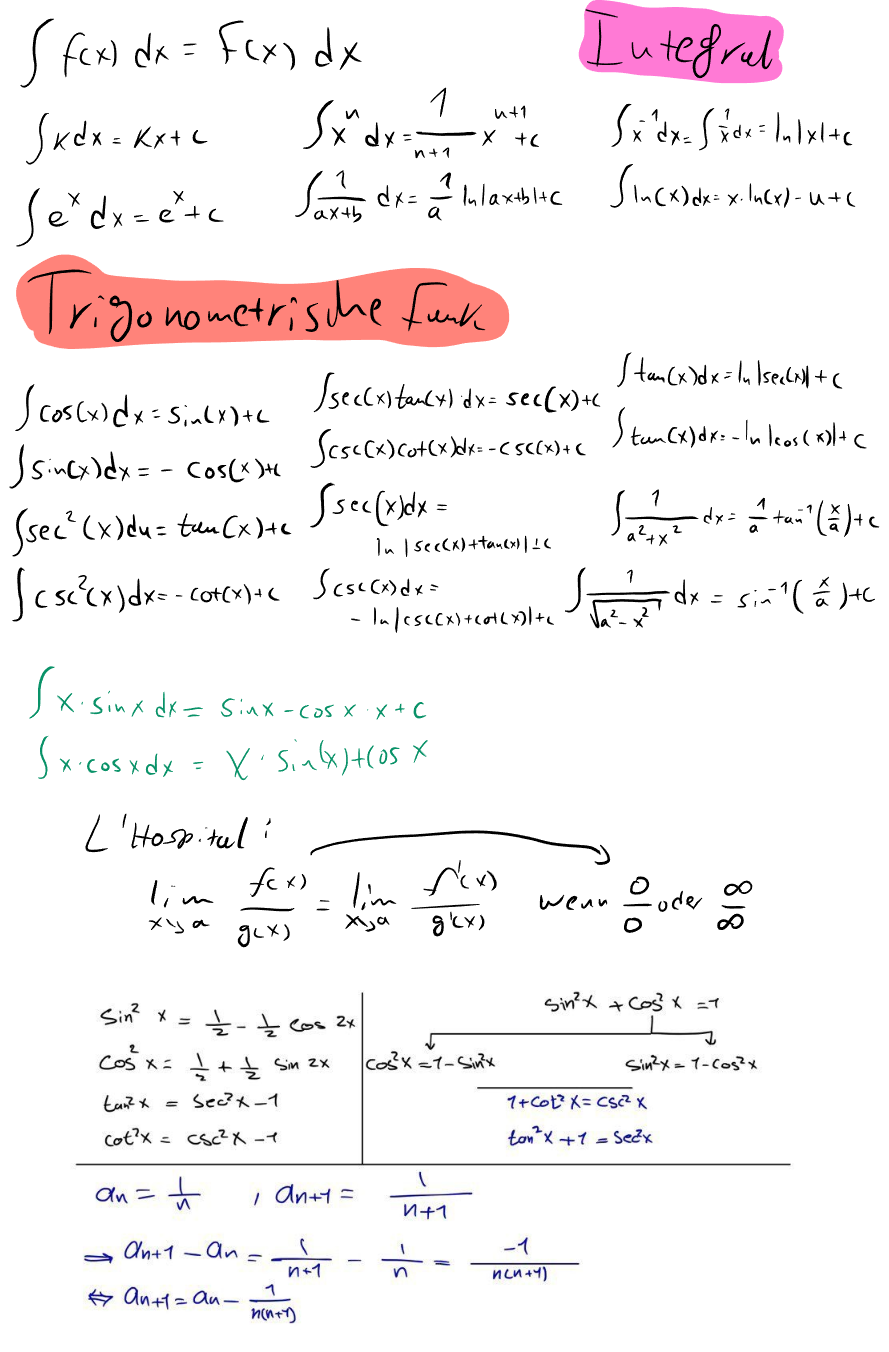 ∫ f(x) dx = F(x) dx
Integral
∫ K dx = Kx + c
∫ xⁿ dx = 1/(n+1) x^(n+1) + c
∫ x⁻¹ dx = ∫ 1/x dx = ln|x| + c
∫ eˣ dx = eˣ + c
∫ 1/(ax+b) dx = 1/a ln|ax+b| + c
∫ ln(x) dx = x · ln(x) - u + c
Trigonometrische Funk
∫ cos(x) dx = sin(x) + c
∫ sin(x) dx = - cos(x) + c
∫ sec²(x) du = tan(x) + c
∫ csc²(x) dx = - cot(x) + c
∫ sec(x) tan(x) · dx = sec(x) + c
∫ csc(x) cot(x) dx = - csc(x) + c
∫ sec(x) dx =
ln |sec(x) + tan(x)| + c
∫ csc(x) dx =
- ln |csc(x) + cot(x)| + c
∫ tan(x) dx = ln |sec(x)| + c
∫ tan(x) dx = - ln |cos(x)| + c
∫ 1/(a² + x²) dx = 1/a tan⁻¹(x/a) + c
∫ 1/√(a² - x²) dx = sin⁻¹(x/a) + c
∫ x · sin x dx = sin x - cos x · x + c
∫ x · cos x dx = x · sin(x) + cos x
L'Hospital :
lim x→a f(x)/g(x) = lim x→a f'(x)/g'(x) wenn 0/0 oder ∞/∞
sin² x = 1/2 - 1/2 cos 2x
cos² x = 1/2 + 1/2 sin 2x
tan² x = sec² x - 1
cot² x = csc² x - 1
sin² x + cos² x = 1
cos² x = 1 - sin² x sin² x = 1 - cos² x
1 + cot² x = csc² x
tan² x + 1 = sec² x
an = 1/n , an+1 = 1/(n+1)
⇒ an+1 - an = 1/(n+1) - 1/n = -1/(n(n+1))
⇔ an+1 = an - 1/(n(n+1))